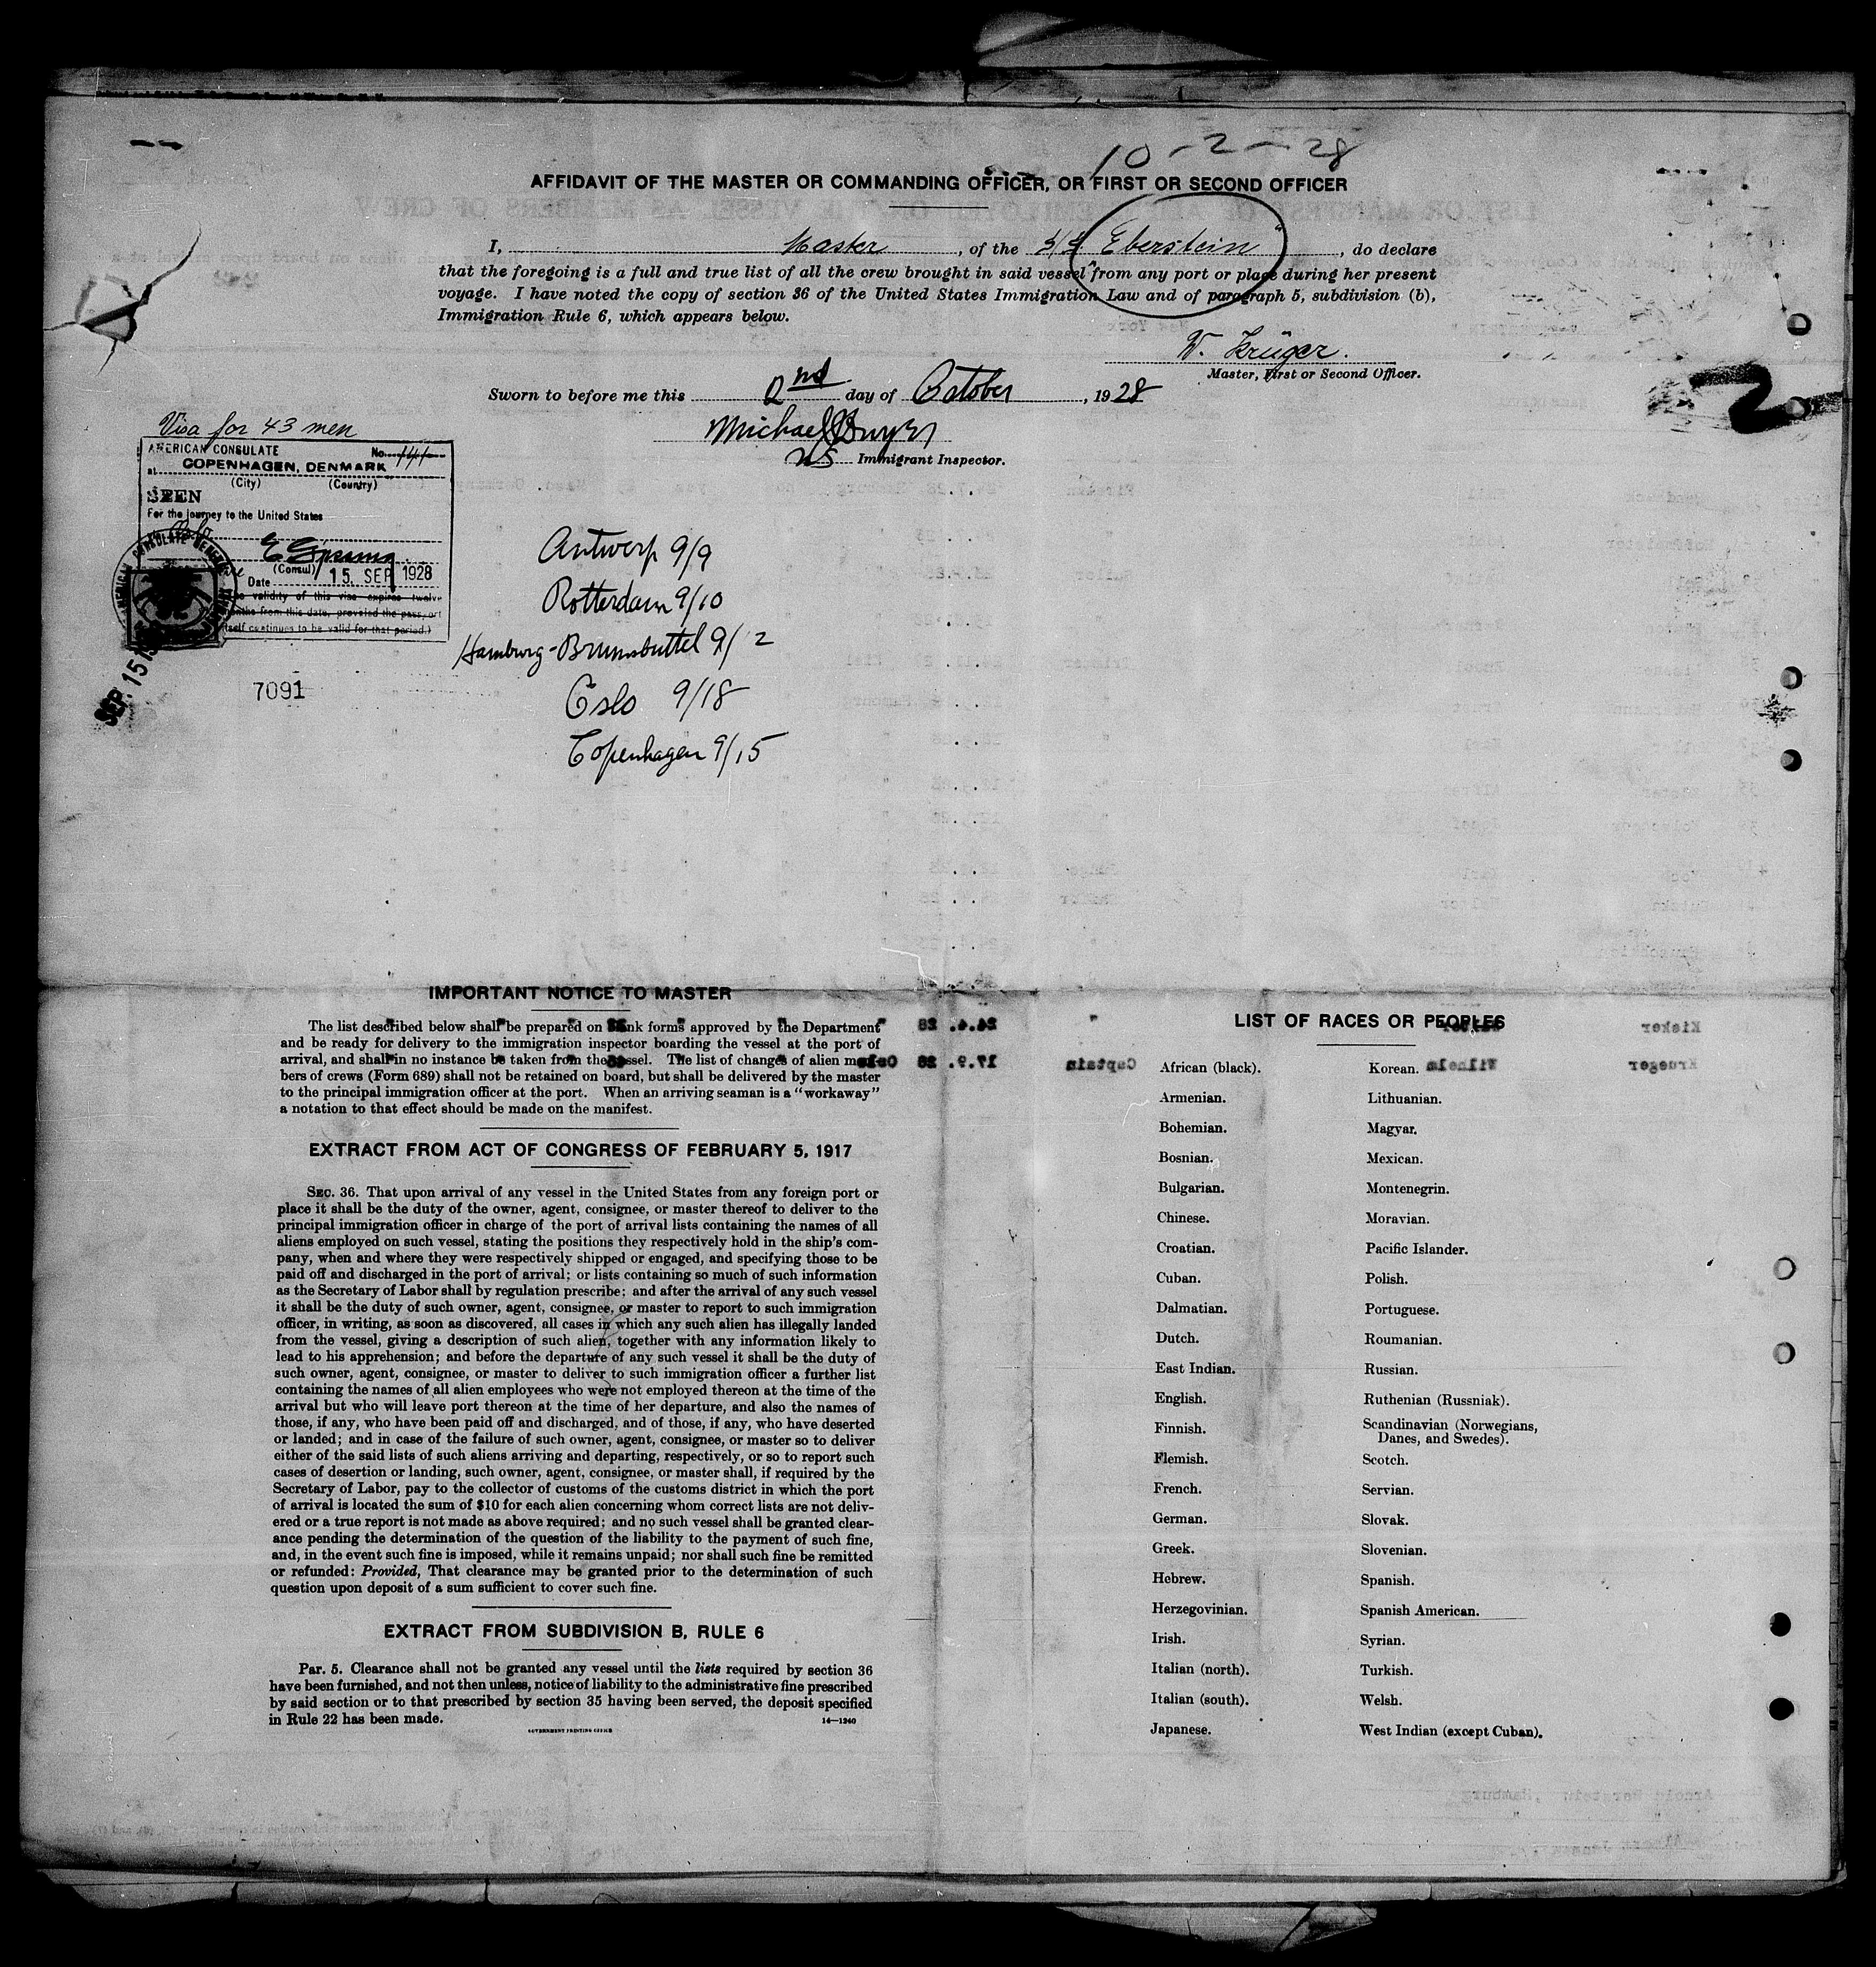 10-2-28
AFFIDAVIT OF THE MASTER OR COMMANDING OFFICER, OR FIRST OR SECOND OFFICER
I, Master, of the S/S "Eberstein", do declare
that the foregoing is a full and true list of all the crew brought in said vessel from any port or place during her present
voyage. I have noted the copy of section 36 of the United States Immigration Law and of paragraph 5, subdivision (b),
Immigration Rule 6, which appears below.
W. Krüger.
Master, First or Second Officer.
Sworn to before me this 2nd day of October, 1928
Michael
Immigrant Inspector.
2
Visa for 43 men
AMERICAN CONSULATE No. 141
at COPENHAGEN, DENMARK
(City) (Country)
SEEN
For the journey to the United States
Oslo
(Consul)
Date 15. SEP 1928
validity of this visa expires twelve
months from this date, provided the passport
itself continues to be valid for that period.)
SEP. 15
7091
Antwerp 9/9
Rotterdam 9/10
Hamburg-Brunsbuttel 9/12
Oslo 9/18
Copenhagen 9/15
IMPORTANT NOTICE TO MASTER
The list described below shall be prepared on blank forms approved by the Department
and be ready for delivery to the immigration inspector boarding the vessel at the port of
arrival, and shall in no instance be taken from the vessel. The list of changes of alien mem-
bers of crews (Form 689) shall not be retained on board, but shall be delivered by the master
to the principal immigration officer at the port. When an arriving seaman is a "workaway"
a notation to that effect should be made on the manifest.
EXTRACT FROM ACT OF CONGRESS OF FEBRUARY 5, 1917
SEC. 36. That upon arrival of any vessel in the United States from any foreign port or
place it shall be the duty of the owner, agent, consignee, or master thereof to deliver to the
principal immigration officer in charge of the port of arrival lists containing the names of all
aliens employed on such vessel, stating the positions they respectively hold in the ship's com-
pany, when and where they were respectively shipped or engaged, and specifying those to be
paid off and discharged in the port of arrival; or lists containing so much of such information
as the Secretary of Labor shall by regulation prescribe; and after the arrival of any such vessel
it shall be the duty of such owner, agent, consignee, or master to report to such immigration
officer, in writing, as soon as discovered, all cases in which any such alien has illegally landed
from the vessel, giving a description of such alien, together with any information likely to
lead to his apprehension; and before the departure of any such vessel it shall be the duty of
such owner, agent, consignee, or master to deliver to such immigration officer a further list
containing the names of all alien employees who were not employed thereon at the time of the
arrival but who will leave port thereon at the time of her departure, and also the names of
those, if any, who have been paid off and discharged, and of those, if any, who have deserted
or landed; and in case of the failure of such owner, agent, consignee, or master so to deliver
either of the said lists of such aliens arriving and departing, respectively, or so to report such
cases of desertion or landing, such owner, agent, consignee, or master shall, if required by the
Secretary of Labor, pay to the collector of customs of the customs district in which the port
of arrival is located the sum of $10 for each alien concerning whom correct lists are not deliv-
ered or a true report is not made as above required; and no such vessel shall be granted clear-
ance pending the determination of the question of the liability to the payment of such fine,
and, in the event such fine is imposed, while it remains unpaid; nor shall such fine be remitted
or refunded: Provided, That clearance may be granted prior to the determination of such
question upon deposit of a sum sufficient to cover such fine.
EXTRACT FROM SUBDIVISION B, RULE 6
Par. 5. Clearance shall not be granted any vessel until the lists required by section 36
have been furnished, and not then unless, notice of liability to the administrative fine prescribed
by said section or to that prescribed by section 35 having been served, the deposit specified
in Rule 22 has been made.
14—1240
GOVERNMENT PRINTING OFFICE
LIST OF RACES OR PEOPLES
African (black). Korean.
Armenian. Lithuanian.
Bohemian. Magyar.
Bosnian. Mexican.
Bulgarian. Montenegrin.
Chinese. Moravian.
Croatian. Pacific Islander.
Cuban. Polish.
Dalmatian. Portuguese.
Dutch. Roumanian.
East Indian. Russian.
English. Ruthenian (Russniak).
Finnish. Scandinavian (Norwegians,
Danes, and Swedes).
Flemish. Scotch.
French. Servian.
German. Slovak.
Greek. Slovenian.
Hebrew. Spanish.
Herzegovinian. Spanish American.
Irish. Syrian.
Italian (north). Turkish.
Italian (south). Welsh.
Japanese. West Indian (except Cuban).